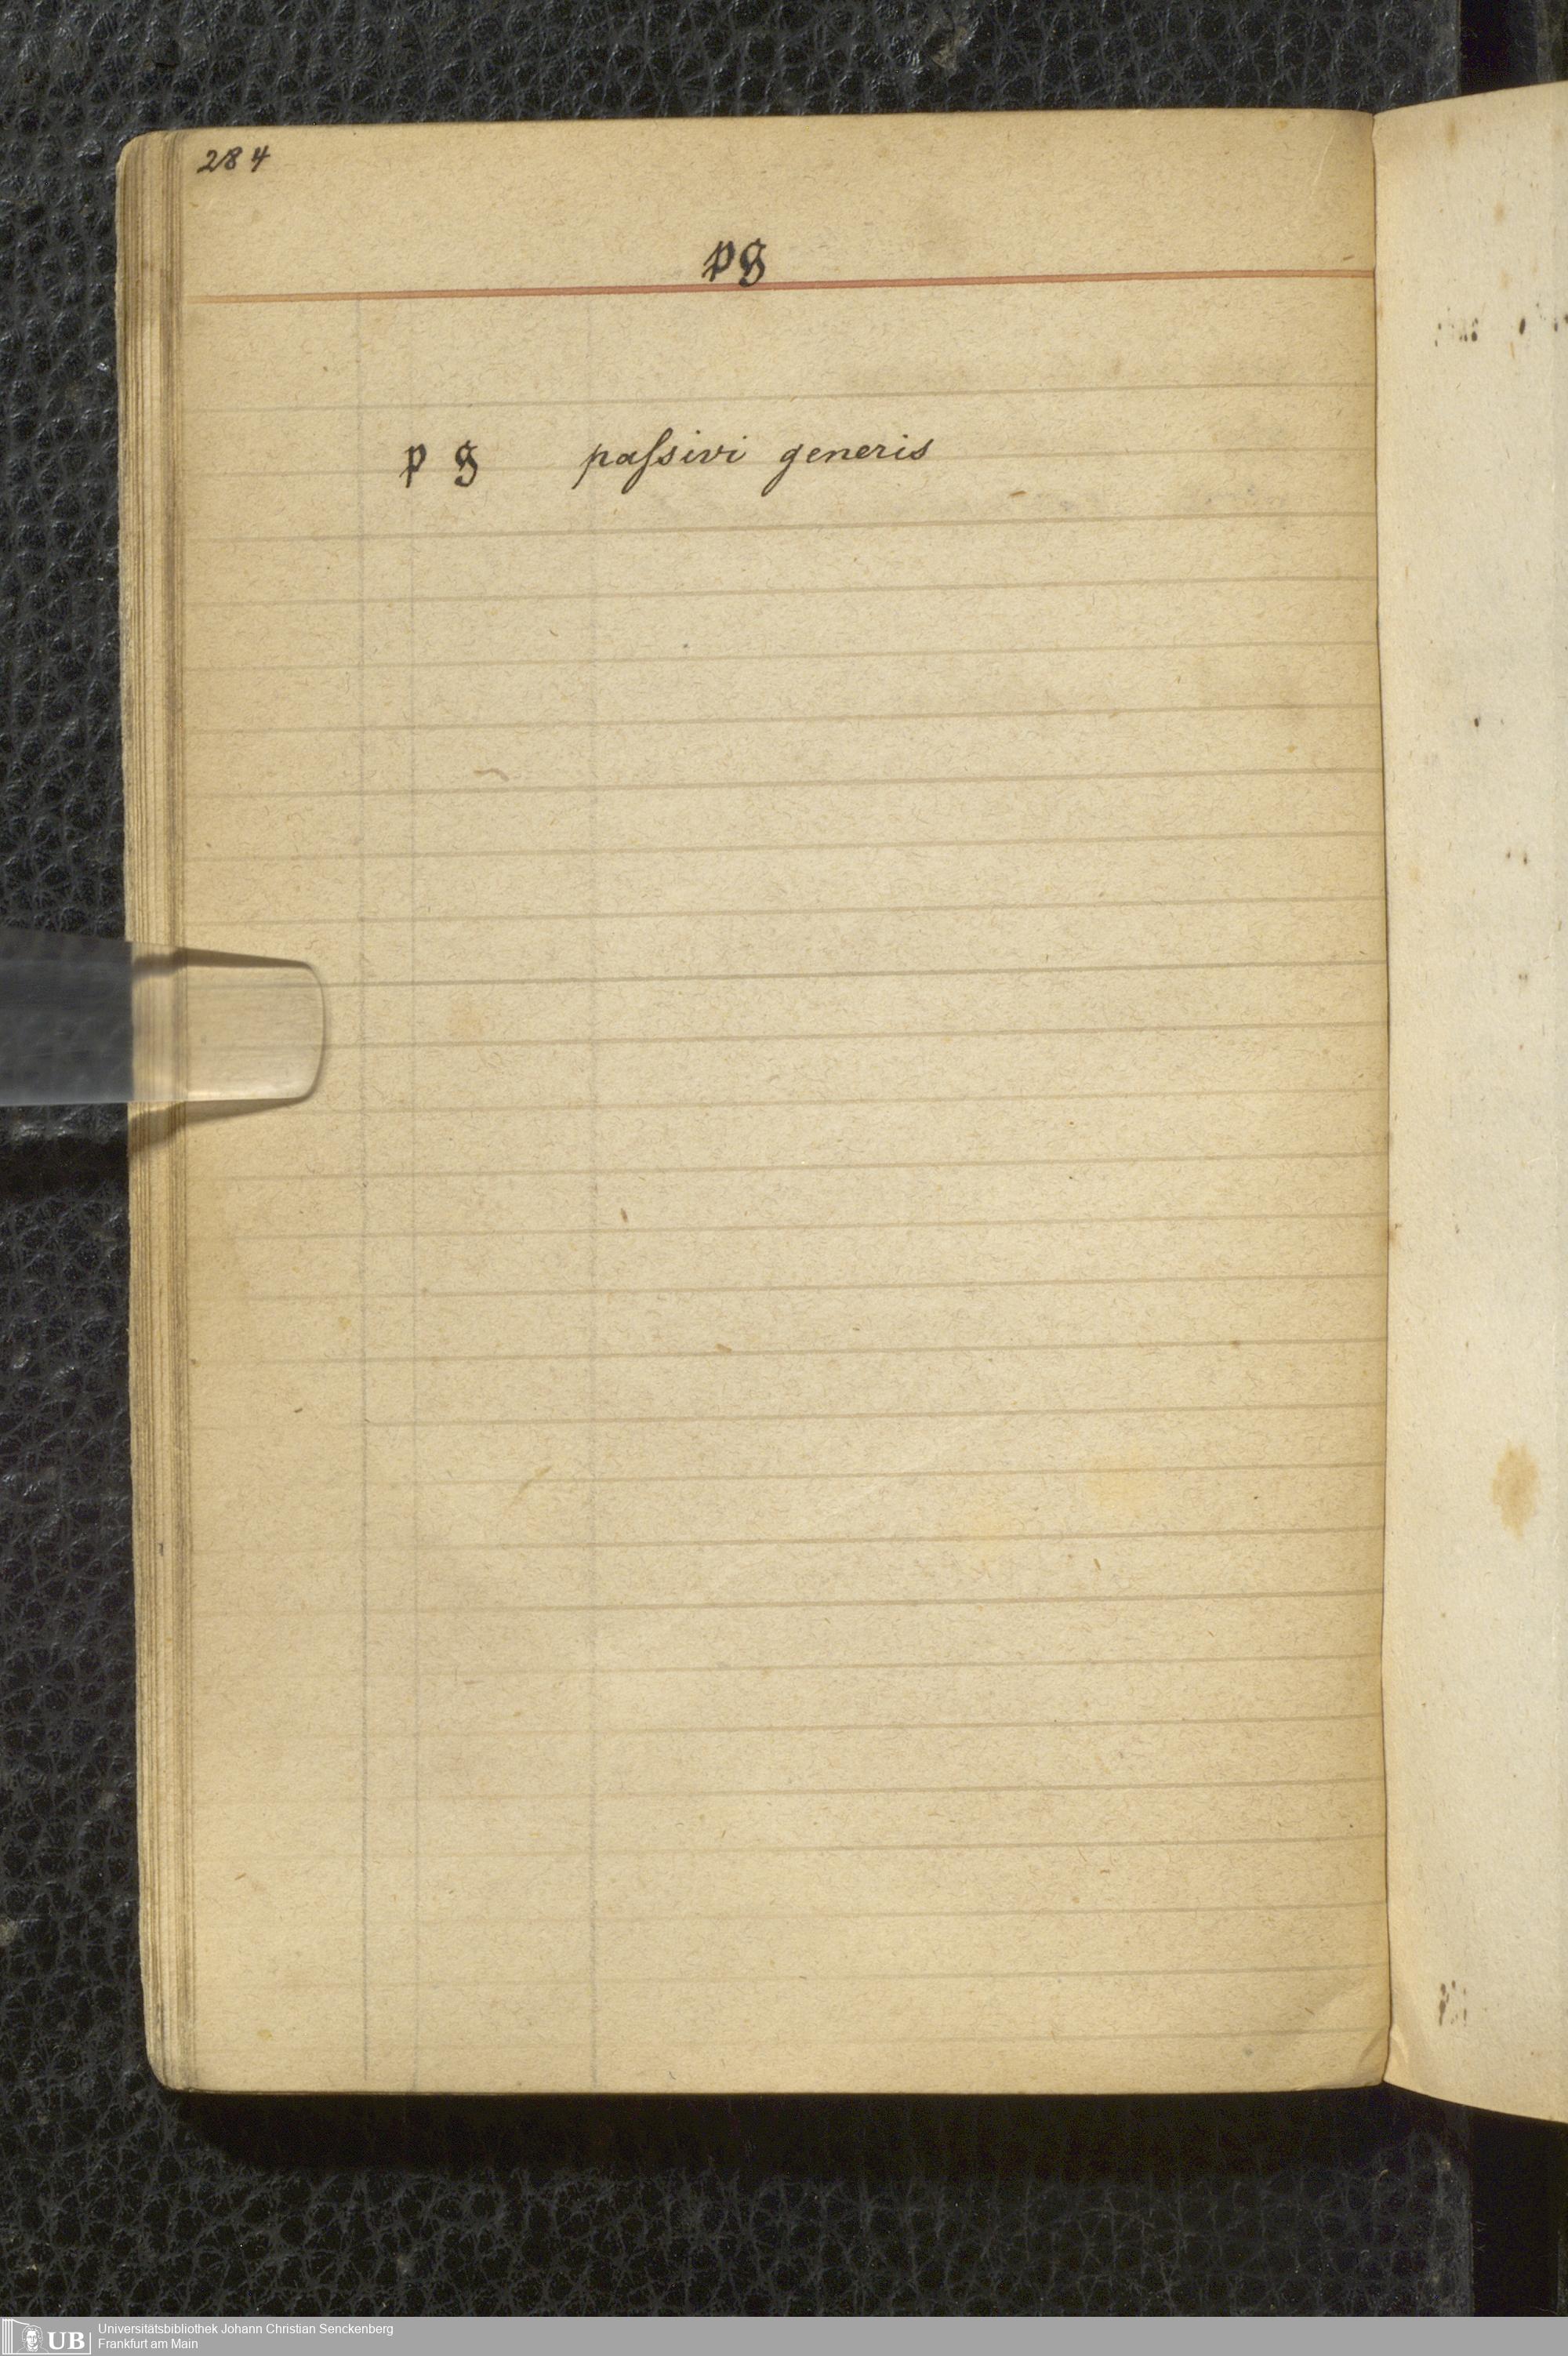 284
pg
p g paſsivi generis
UB Universitätsbibliothek Johann Christian Senckenberg
Frankfurt am Main